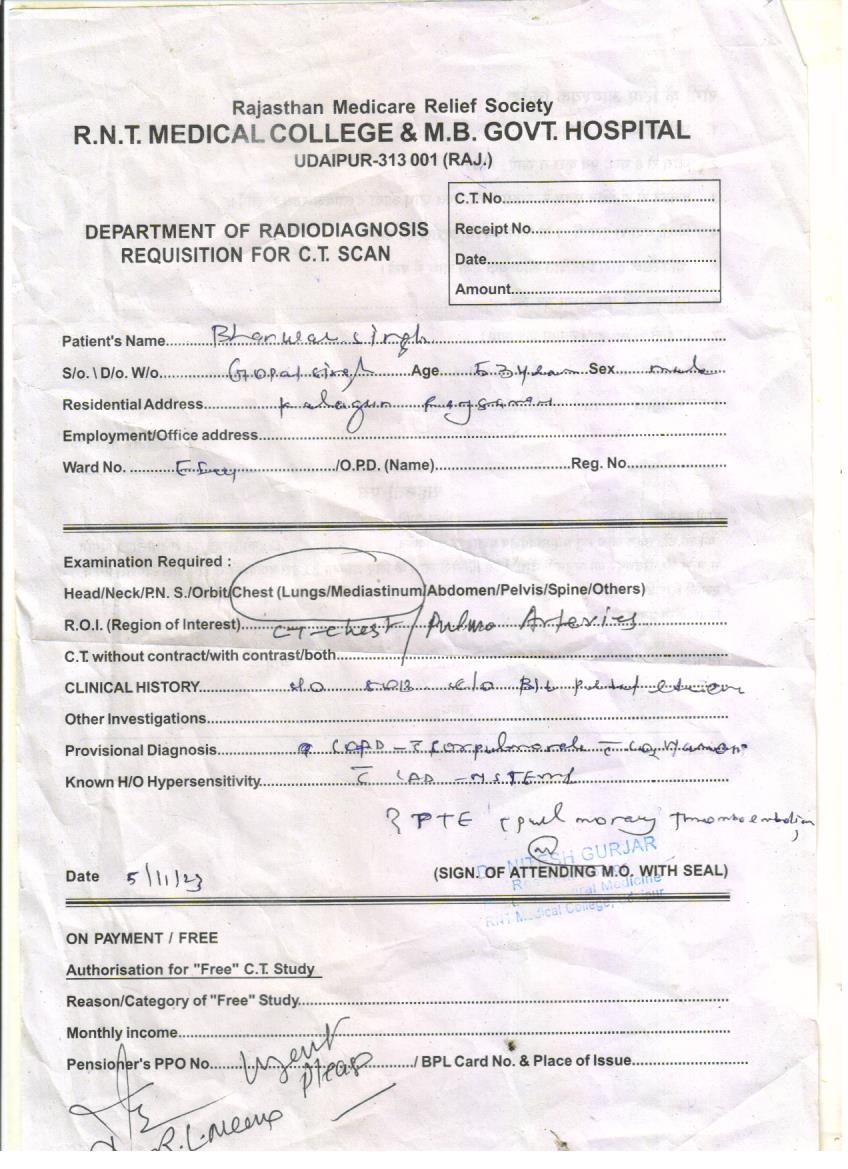 Rajasthan Medicare Relief Society
R.N.T. MEDICAL COLLEGE & M.B. GOVT. HOSPITAL
UDAIPUR-313 001 (RAJ.)
C.T. No.
Receipt No.
Date
Amount
DEPARTMENT OF RADIODIAGNOSIS
REQUISITION FOR C.T. SCAN
Patient's Name Singh
S/o. \ D/o. W/o. Gopal Singh Age Sex male
Residential Address
Employment/Office address
Ward No. /O.P.D. (Name) Reg. No.
Examination Required :
Head/Neck/P.N. S./Orbit/Chest (Lungs/Mediastinum/Abdomen/Pelvis/Spine/Others)
R.O.I. (Region of Interest) CT-chest / Pulmo Arteries
C.T. without contract/with contrast/both
CLINICAL HISTORY
Other Investigations
Provisional Diagnosis
Known H/O Hypersensitivity
? PTE
NITESH GURJAR
Date 5/11/23 (SIGN. OF ATTENDING M.O. WITH SEAL)
Medicine
RNT Medical College,
ON PAYMENT / FREE
Authorisation for "Free" C.T. Study
Reason/Category of "Free" Study
Monthly income
Pensioner's PPO No. / BPL Card No. & Place of Issue
Urgent
please
R.L. Meena